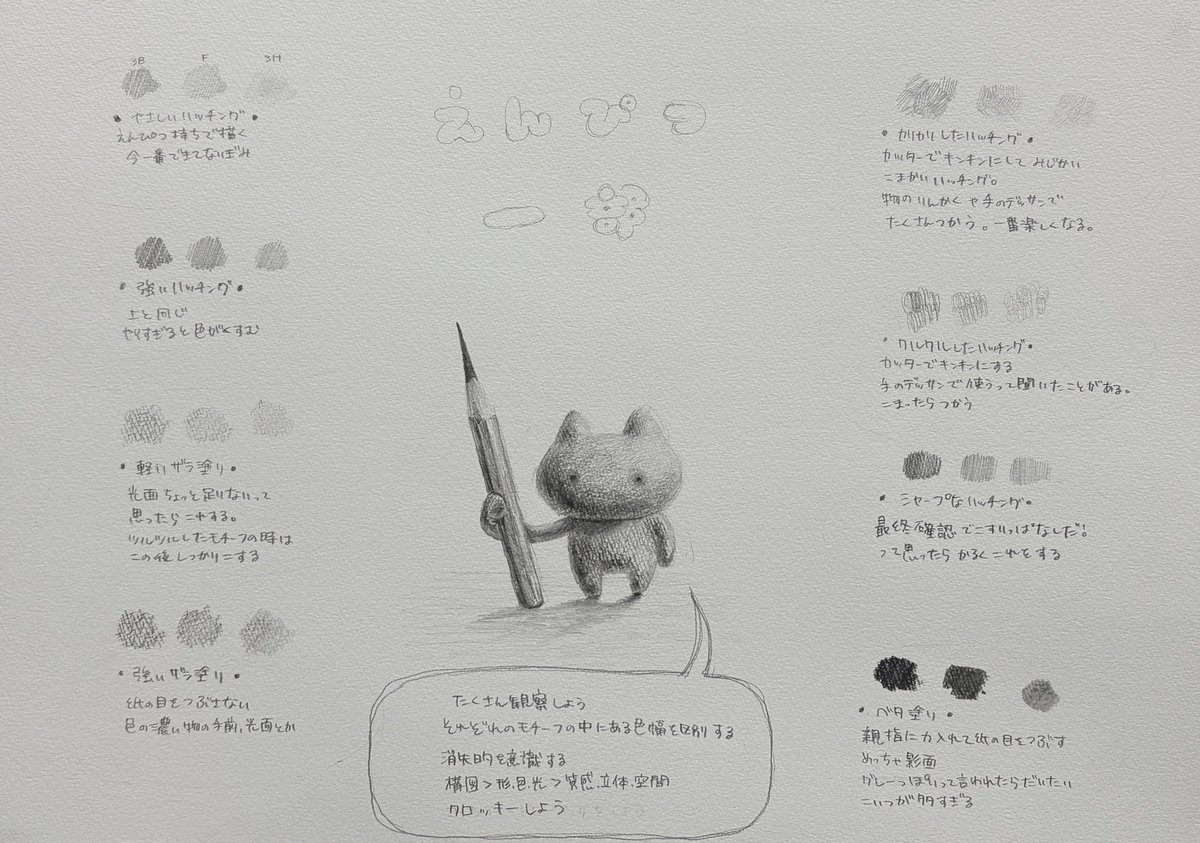 えんぴつ
3B F 3H
・やさしいハッチング・
えんぴつ持ちで描く
今一番できてないぽみ
・強いハッチング・
上と同じ
やりすぎると色がくすむ
・軽いザラ塗り・
光面ちょっと足りないって
思ったらこれする。
ツルツルしたモチーフの時は
この後しっかりこする
・強いザラ塗り・
紙の目をつぶさない
色の濃い物の手前、光面とか
・カリカリしたハッチング・
カッターでキンキンにして みじかい
こまかいハッチング。
物のりんかくや手のデッサンで
たくさんつかう。一番楽しくなる。
・クルクルしたハッチング・
カッターでキンキンにする
手のデッサンで使うって聞いたことがある。
こまったらつかう
・シャープなハッチング・
最終確認でこすりっぱなしだ!
って思ったら かるくこれをする
・ベタ塗り・
親指に力入れて紙の目をつぶす
めっちゃ影面
グレーっぽいって言われたらだいたい
こいつが多すぎる
たくさん観察しよう
それぞれのモチーフの中にある色幅を区別する
消失的を意識する
構図>形,色,光>質感,立体,空間
クロッキーしよう